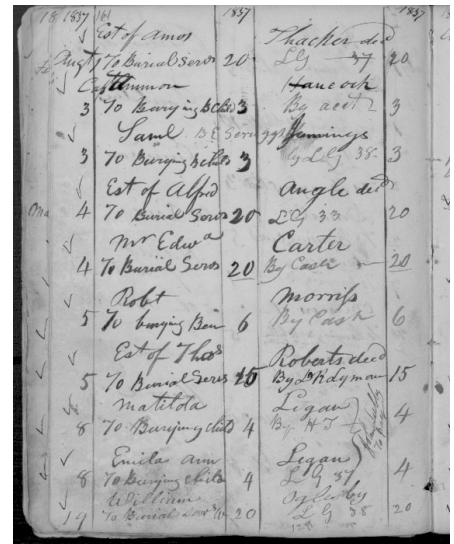 18 1837 161 1837 1837
Est of Amos Thacker decd
Augt 1 To Burial Servs 20 LG 37 20
Hancock
3 To Burying & Chd 3 By acct 3
Saml Jennings
3 To Burying & Chds 3 By LG 38 3
Est of Alfred Angle decd
4 To Burial Servs 20 LG 33 20
Mr Edwd Carter
4 To Burial Servs 20 By Cash 20
Robt Morriss
5 To burying Ben 6 By Cash 6
Est of Thos Roberts decd
5 To Burial Servs 15 By 15
Matilda Logan
8 To Burying child 4 By H T 4
Emila Ann Logan
8 To Burying child 4 LG 37 4
William Oglesby
19 To Burial Servs 20 LG 38 20